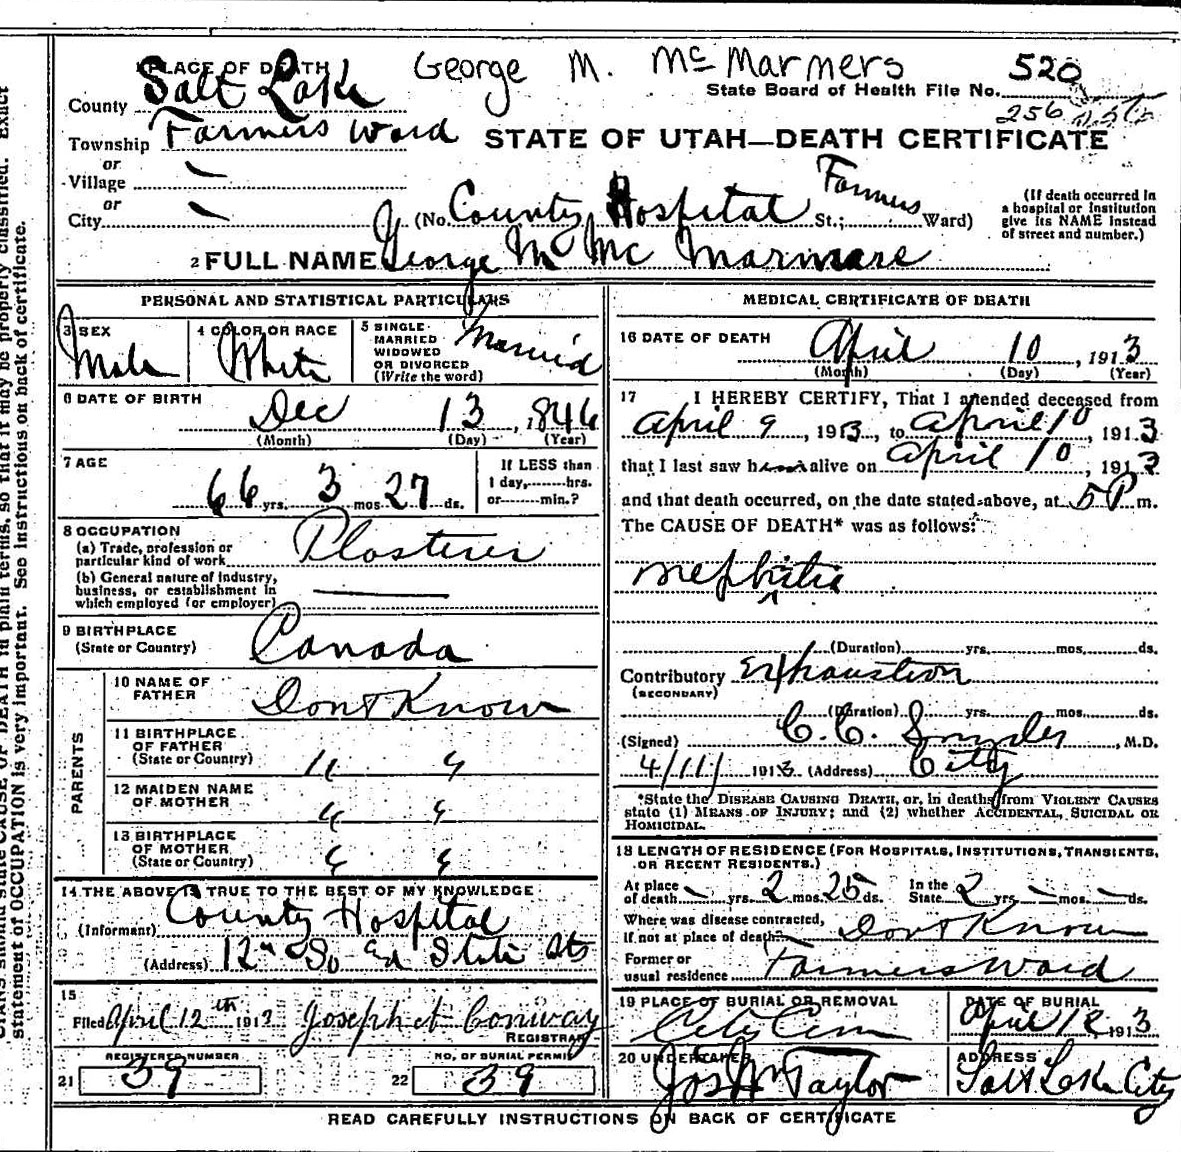 George M. McMarmers
520
PLACE OF DEATH
State Board of Health File No.
256
County Salt Lake
Township Farmers Ward
STATE OF UTAH—DEATH CERTIFICATE
or
Village
or
City (No. County Hospital St.; Farmers Ward)
(If death occurred in a hospital or institution give its NAME instead of street and number.)
2 FULL NAME George M Mc Marmare
PERSONAL AND STATISTICAL PARTICULARS
3 SEX Male
4 COLOR OR RACE White
5 SINGLE MARRIED WIDOWED OR DIVORCED (Write the word) Married
6 DATE OF BIRTH
Dec 13, 1846
(Month) (Day) (Year)
7 AGE
66 yrs. 3 mos. 27 ds.
If LESS than 1 day, hrs. or min.?
8 OCCUPATION
(a) Trade, profession or particular kind of work Plasterer
(b) General nature of industry, business, or establishment in which employed (or employer)
9 BIRTHPLACE
(State or Country) Canada
PARENTS
10 NAME OF FATHER Dont Know
11 BIRTHPLACE OF FATHER (State or Country) " "
12 MAIDEN NAME OF MOTHER " "
13 BIRTHPLACE OF MOTHER (State or Country) " "
14 THE ABOVE IS TRUE TO THE BEST OF MY KNOWLEDGE
(Informant) County Hospital
(Address) 12th So Ed State St
15
Filed April 12th 1913 Joseph H Conway
REGISTRAR
REGISTERED NUMBER
21 39
NO. OF BURIAL PERMIT
22 39
MEDICAL CERTIFICATE OF DEATH
16 DATE OF DEATH April 10, 1913
(Month) (Day) (Year)
17 I HEREBY CERTIFY, That I attended deceased from
April 9, 1913, to April 10, 1913
that I last saw h alive on April 10, 1913
and that death occurred, on the date stated above, at 5 P m.
The CAUSE OF DEATH* was as follows:
nephritis
(Duration) yrs. mos. ds.
Contributory Exhaustion
(SECONDARY)
(Duration) yrs. mos. ds.
(Signed) C. C. Snyder, M.D.
4/11/ 1913 (Address) City
*State the DISEASE CAUSING DEATH, or, in deaths from VIOLENT CAUSES
state (1) MEANS OF INJURY; and (2) whether ACCIDENTAL, SUICIDAL OR
HOMICIDAL.
18 LENGTH OF RESIDENCE (FOR HOSPITALS, INSTITUTIONS, TRANSIENTS,
OR RECENT RESIDENTS.)
At place of death — yrs. 2 mos. 25 ds. In the State 2 yrs. — mos. — ds.
Where was disease contracted, If not at place of death? Dont Know
Former or usual residence Farmers Ward
19 PLACE OF BURIAL OR REMOVAL
City Cem
DATE OF BURIAL
April 12, 1913
20 UNDERTAKER
Jos Wm Taylor
ADDRESS
Salt Lake City
READ CAREFULLY INSTRUCTIONS ON BACK OF CERTIFICATE
DEATH in plain terms, so that it may be properly classified. Exact
statement of OCCUPATION is very important. See instructions on back of certificate.